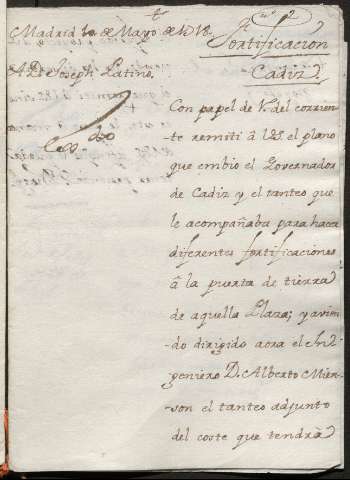 Madrid 10 de Mayo de 1718.
Fortificacion
Cadiz
A D. Joseph Patino.
Con papel de V. del corrien-
te remiti à V.S. el plano
que embio el Governador
de Cadiz y el tanteo que
le acompañaba para hacer
diferentes fortificaciones
à la puerta de tierra
de aquella Plaza; y avien-
do dirigido aora el In-
geniero D. Alberto Mien-
son el tanteo adjunto
del coste que tendrà